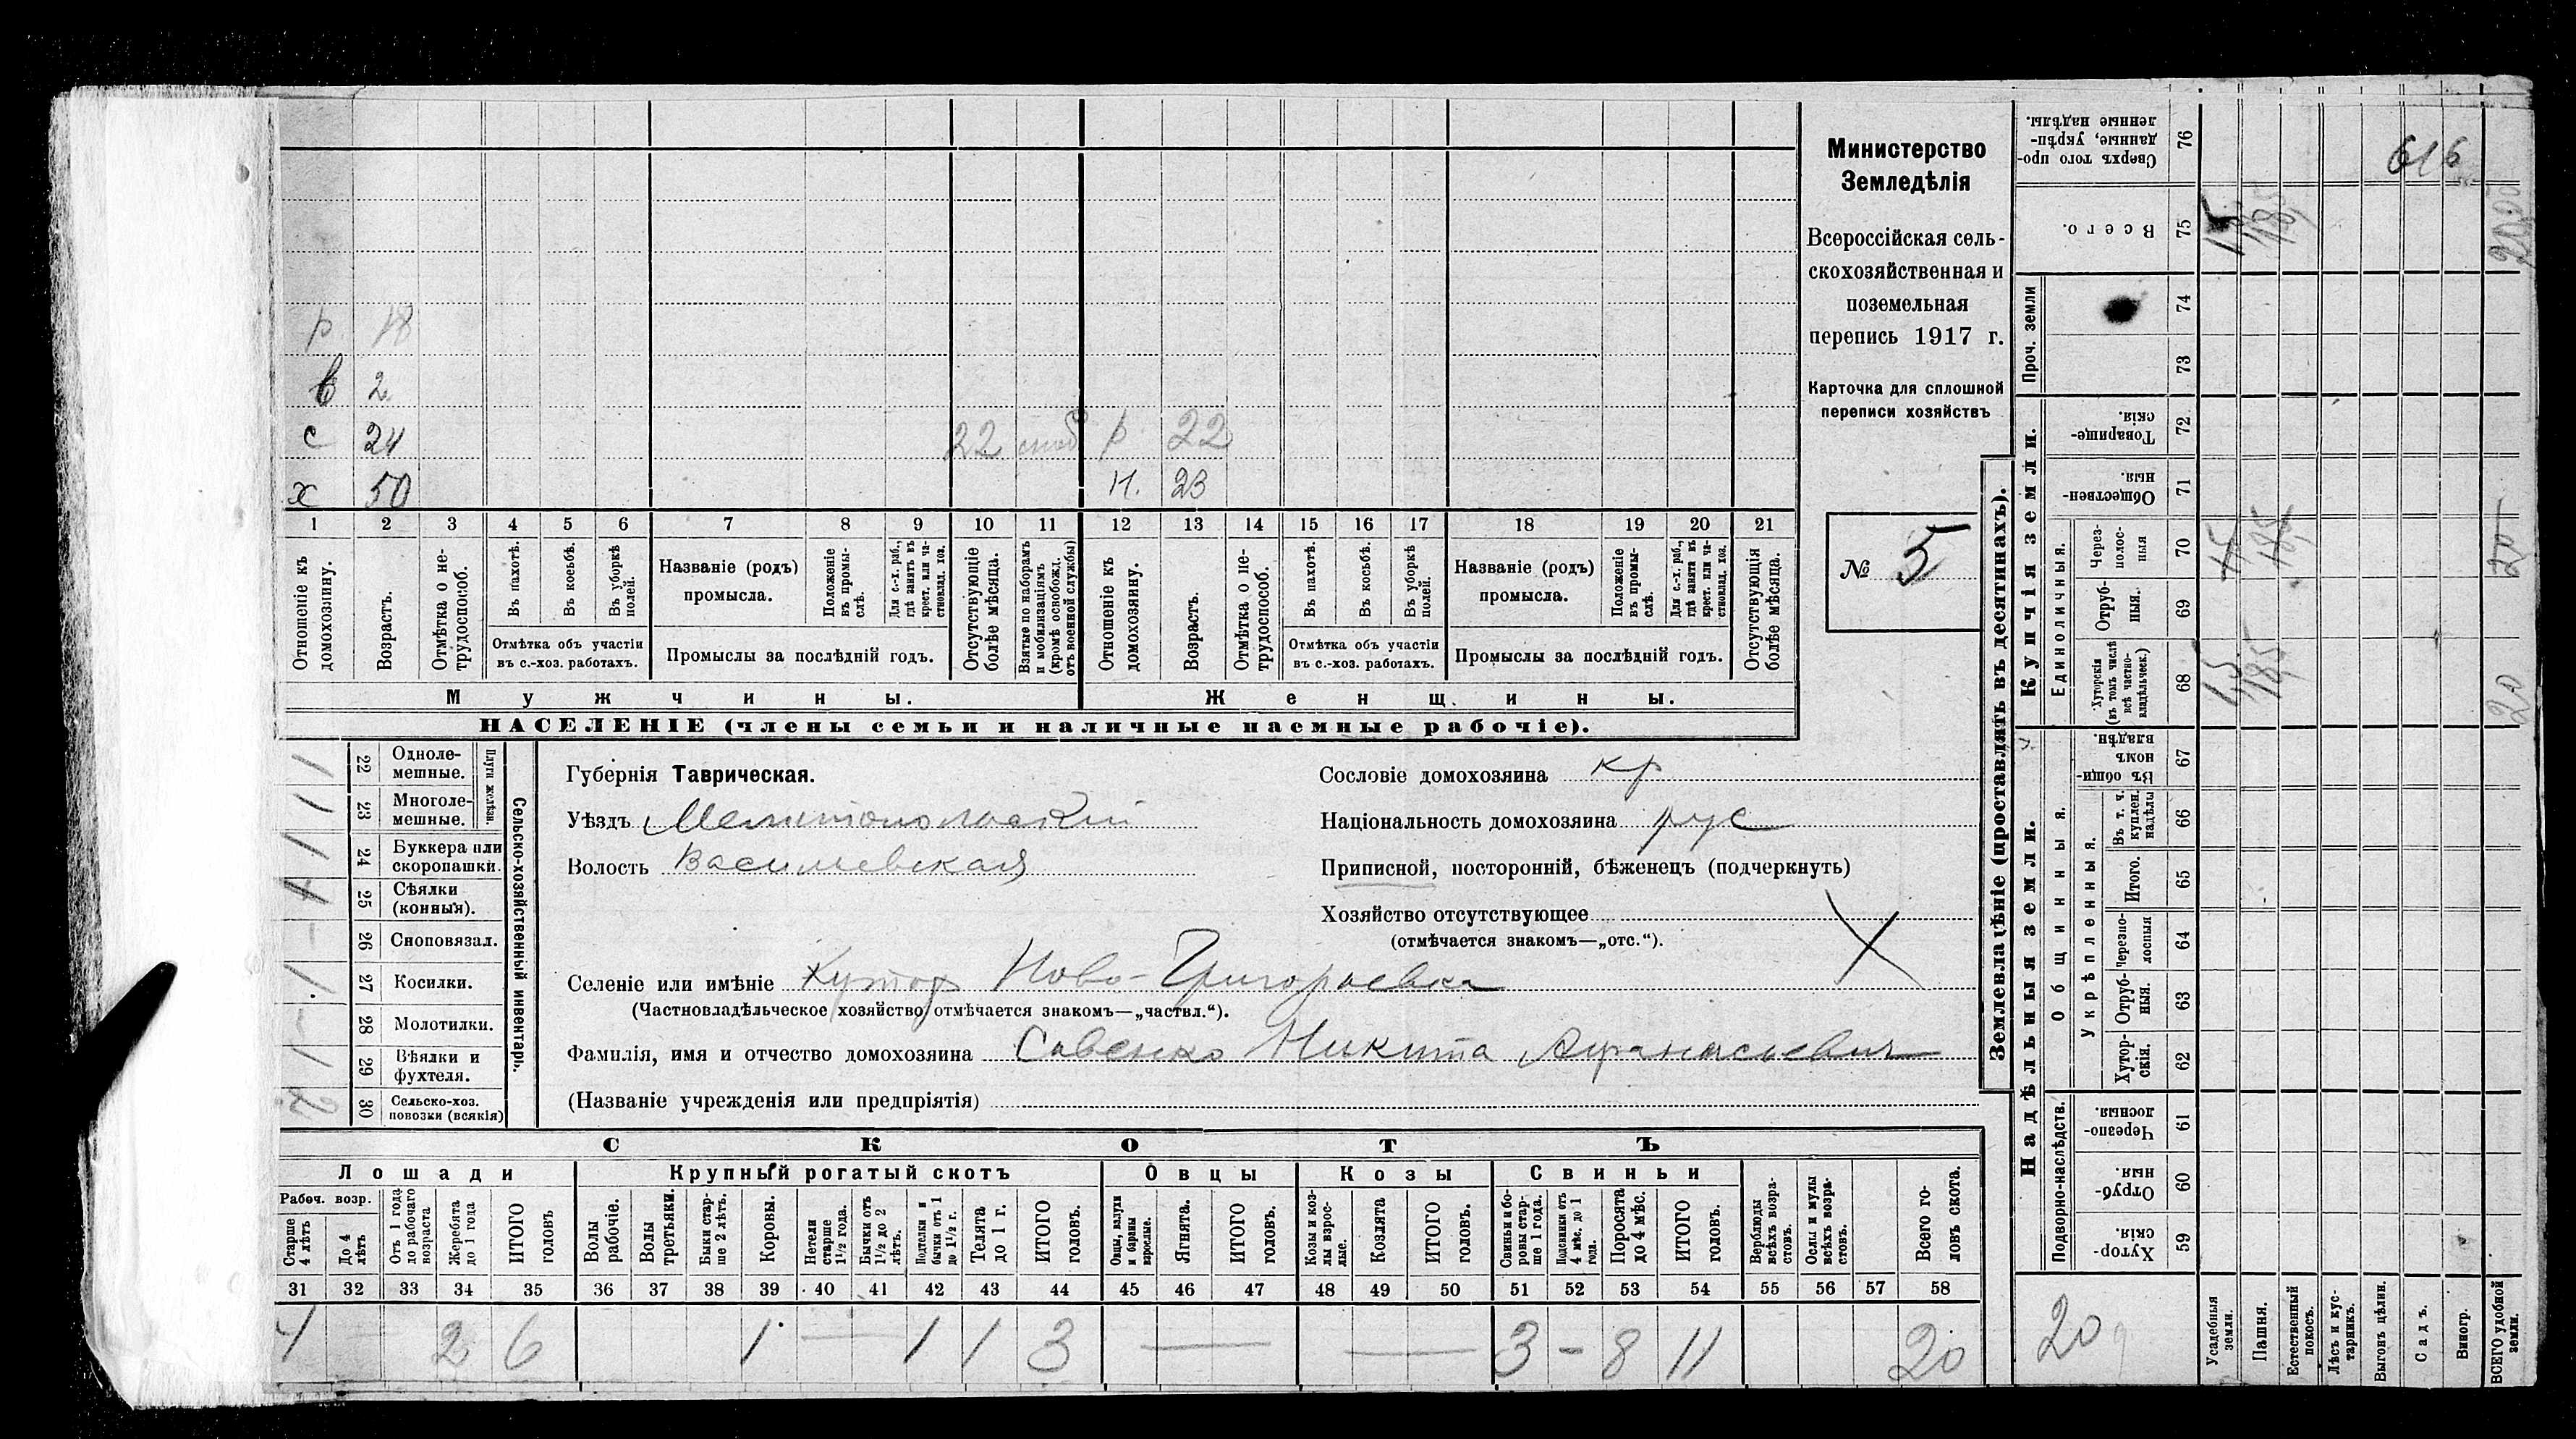 Министерство
Земледѣлія
Всероссійская сель-
скохозяйственная и
поземельная
перепись 1917 г.
Карточка для сплошной
переписи хозяйствъ
№ 5
р 18
в 2
с 24 22 р 22
х 50 н. 23
1 2 3 4 5 6 7 8 9 10 11 12 13 14 15 16 17 18 19 20 21
Отношеніе къ домохозяину.
Возрастъ.
Отмѣтка о не-трудоспособ.
Въ пахотѣ.
Въ косьбѣ.
Въ уборкѣ полей.
Отмѣтка объ участіи
въ с.-хоз. работахъ.
Названіе (родъ)
промысла.
Положеніе въ промы-слѣ.
Для с.-х. раб., гдѣ занятъ въ крест. или ча-стновлад. хоз.
Промыслы за послѣдній годъ.
Отсутствующіе болѣе мѣсяца.
Взятые по наборамъ и мобилизаціямъ (кромѣ освобожд. отъ военной службы)
Отношеніе къ домохозяину.
Возрастъ.
Отмѣтка о не-трудоспособ.
Въ пахотѣ.
Въ косьбѣ.
Въ уборкѣ полей.
Отмѣтка объ участіи
въ с.-хоз. работахъ.
Названіе (родъ)
промысла.
Положеніе въ промы-слѣ.
Для с.-х. раб., гдѣ занята въ крест. или ча-стновлад. хоз.
Промыслы за послѣдній годъ.
Отсутствующія болѣе мѣсяца.
Мужчины.
Женщины.
НАСЕЛЕНІЕ (члены семьи и наличные наемные рабочіе).
Сельско-хозяйственный инвентарь.
Плуги желѣзн.
1 22 Одноле-мешные.
1 23 Многоле-мешные.
1 24 Буккера или скоропашки.
1 25 Сѣялки (конныя).
- 26 Сноповязал.
1 27 Косилки.
- 28 Молотилки.
1 29 Вѣялки и фухтеля.
2 30 Сельско-хоз. повозки (всякія)
Губернія Таврическая.
Уѣздъ Мелитопольскій
Волость Василевская
Сословіе домохозяина кр
Національность домохозяина рус
Приписной, посторонній, бѣженецъ (подчеркнуть)
Хозяйство отсутствующее
(отмѣчается знакомъ—„отс.“).
Селеніе или имѣніе Хутор Ново-Григорьевка
(Частновладѣльческое хозяйство отмѣчается знакомъ—„частвл.“).
Фамилія, имя и отчество домохозяина Савенко Никита Афанасьевич
(Названіе учрежденія или предпріятія)
СКОТЪ
Лошади
Крупный рогатый скотъ
Овцы
Козы
Свиньи
Рабоч. возр.
Старше 4 лѣтъ
До 4 лѣтъ
Отъ 1 года до рабочаго возраста
Жеребята до 1 года
ИТОГО головъ
Волы рабочіе.
Волы третьяки.
Быки стар-ше 2 лѣтъ.
Коровы.
Нетели старше 1½ года.
Бычки отъ 1½ до 2 лѣтъ.
Подтелки и бычки отъ 1 до 1½ г.
Телята до 1 г.
ИТОГО головъ.
Овцы, валухи и бараны взрослые.
Ягнята.
ИТОГО головъ.
Козы и коз-лы взрос-лые.
Козлята
ИТОГО головъ.
Свиньи и бо-ровы стар-ше 1 года.
Подсвинки отъ 4 мѣс. до 1 года.
Поросята до 4 мѣс.
ИТОГО головъ.
Верблюды всѣхъ возра-стовъ.
Ослы и мулы всѣхъ возра-стовъ.
Всего го-ловъ скота.
31 32 33 34 35 36 37 38 39 40 41 42 43 44 45 46 47 48 49 50 51 52 53 54 55 56 57 58
4 — 2 6 1 — 1 1 3 — — 3 - 8 11 20
Землевладѣніе (проставлять въ десятинахъ).
Надѣльныя земли.
Купчія земли.
Проч. земли
Подворно-наслѣдств.
Общинныя.
Укрѣпленныя.
Единоличныя.
Сверхъ того про-данные, укрѣп-ленные надѣлы. 76
Всего. 75
74
73
Товарище-скія. 72
Обществен-ныя. 71
Через-полос-ныя 70
Отруб-ныя. 69
Хуторскія (въ томъ числѣ всѣ частно-владѣльческ.) 68
Въ общи-номъ владѣн. 67
Въ т. ч. куплен. надѣлы 66
Итого. 65
Черезпо-лосныя 64
Отруб-ныя. 63
Хутор-скія. 62
Черезпо-лосныя 61
Отруб-ныя. 60
Хутор-скія. 59
616
1,5 18,5
20
20
Усадебныя земли.
Пашня.
Естественный покосъ.
Лѣсъ и кус-тарникъ.
Выгонъ цѣлин.
Садъ.
Виногр.
ВСЕГО удобной земли.